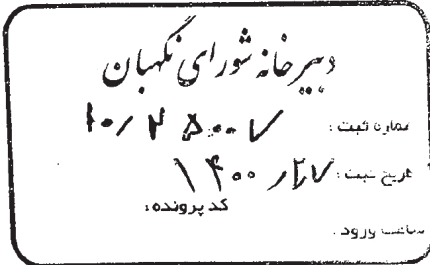 دبیرخانه شورای نگهبان
شماره ثبت :
تاریخ ثبت : ۱۴۰۰/۲/۷
کد پرونده :
ساعت ورود :